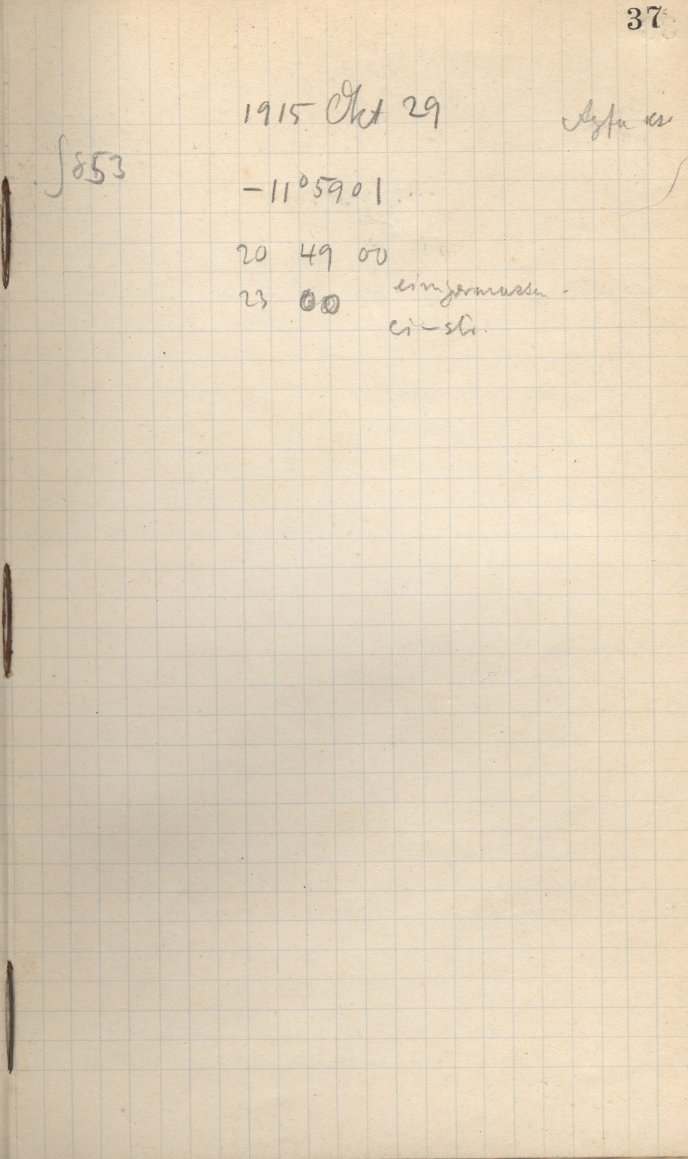 37
1915 Okt 29
Agfa
853
-11°5901
20 49 00
23 00 einigermassen
ci-str.